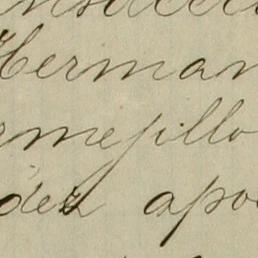 Herman
rmejillo
dez apo